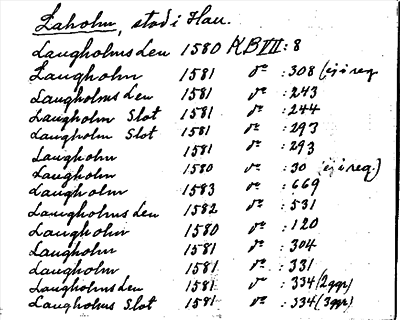 Laholm, stad i Hall.
Laugholms Len 1580 KB VII : 8
Laugholm 1581 do : 308 (ej i reg.
Laugholms Len 1581 do : 243
Laugholm Slot 1581 do : 244
Laugholm Slot 1581 do : 293
Laugholm 1581 do : 293
Laugholm 1580 do : 30 (ej i reg.)
Laugholm 1583 do : 669
Laugholms Len 1582 do : 531
Laugholm 1580 do : 120
Laugholm 1581 do : 304
Laugholm 1581 do : 331
Laugholms Len 1581 do : 334 (2 ggr)
Laugholms Slot 1581 do : 334 (3 ggr)